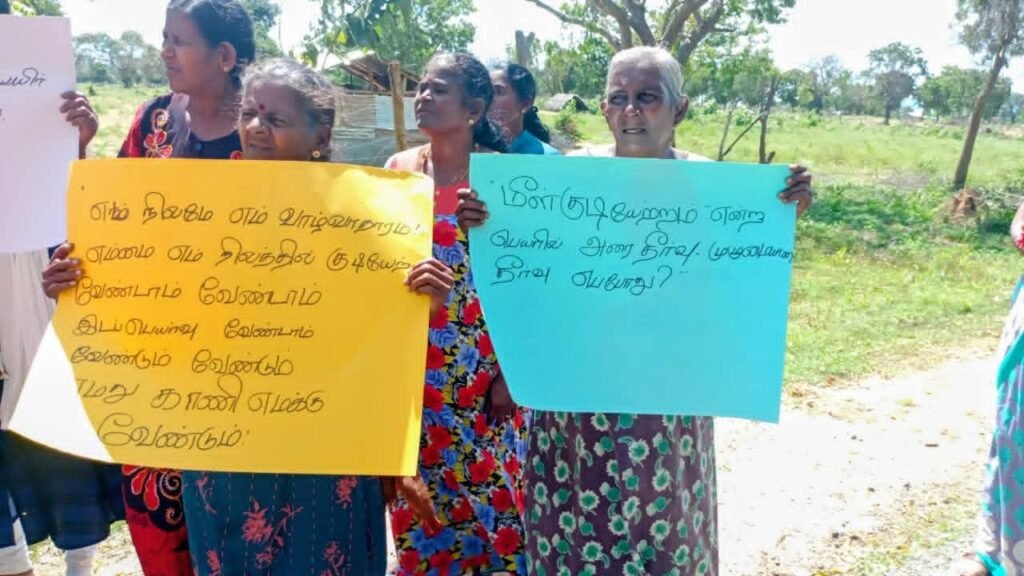 எம் நிலமே எம் வாழ்வாதாரம்!
எம்மை எம் நிலத்தில் குடியேற
வேண்டாம் வேண்டாம்
இடப்பெயர்வு வேண்டாம்
வேண்டும் வேண்டும்
எமது காணி எமக்கு
வேண்டும்!
"மீள்குடியேற்றம்" என்ற
பெயரில் அரை தீர்வு. முழுமையான
தீர்வு எப்போது?"